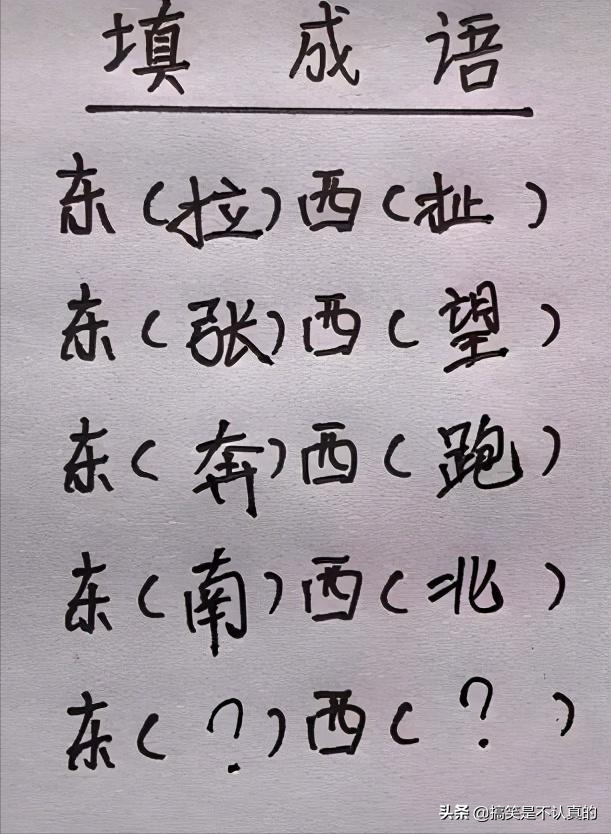 填 成 语
东(拉)西(扯)
东(张)西(望)
东(奔)西(跑)
东(南)西(北)
东(?)西(?)
头条 @搞笑是不认真的